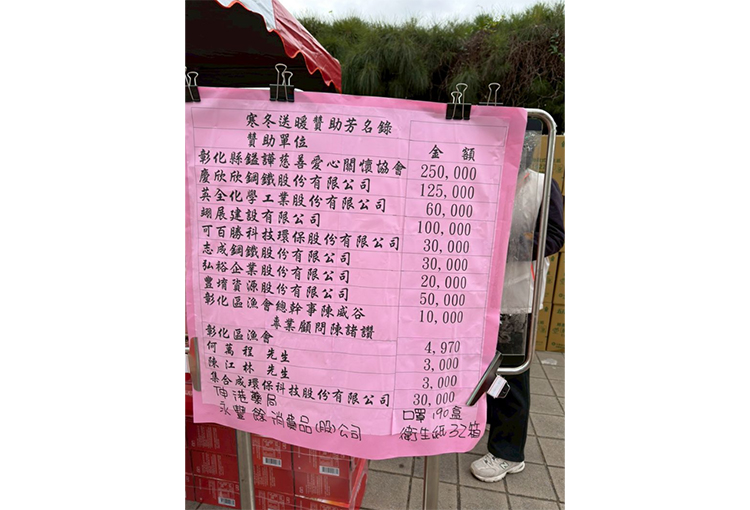 寒冬送暖贊助芳名錄
贊助單位 金額
彰化縣鎰譁慈善愛心關懷協會 250,000
慶欣欣鋼鐵股份有限公司 125,000
英全化學工業股份有限公司 60,000
翊展建設有限公司 100,000
可百勝科技環保股份有限公司 30,000
志成鋼鐵股份有限公司 30,000
弘裕企業股份有限公司 20,000
豐堉資源股份有限公司 50,000
彰化區漁會總幹事陳威谷 10,000
專業顧問陳諸讚
彰化區漁會 4,970
何萬程 先生 3,000
陳江林 先生 3,000
集合成環保科技股份有限公司 30,000
伸港藥局 口罩190盒
永豐餘消藥品(股)公司 衛生紙32箱